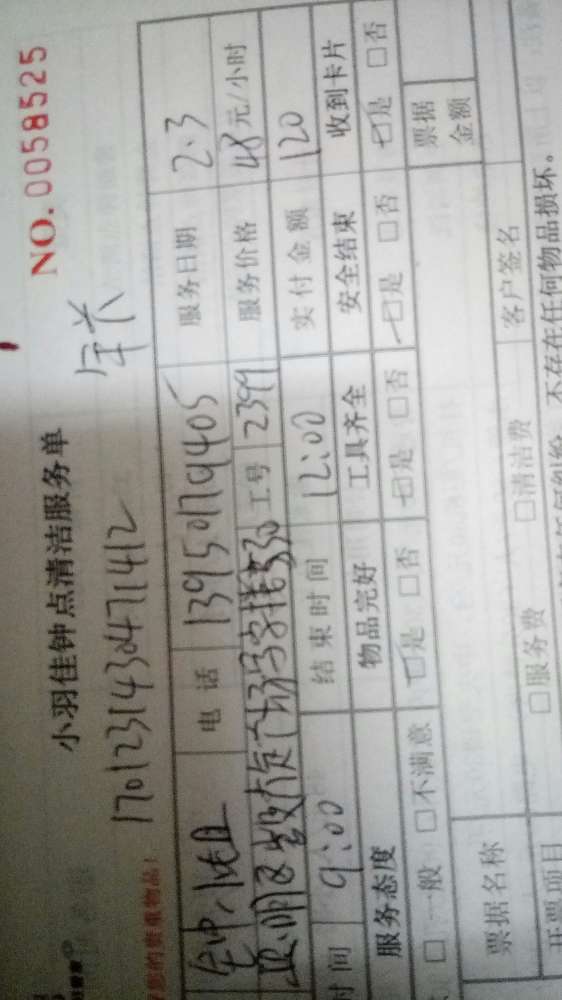 NO. 0058525
小羽佳钟点清洁服务单
17012314304471412
您的贵重物品！
电话 13950179405 服务日期 2.3
工号 2399 服务价格 48元/小时
时间 9:00 结束时间 12:00 实付金额 120
服务态度 物品完好 工具齐全 安全结束 收到卡片
□一般 □不满意 □是 □否 □是 □否 □是 □否 □是 □否
票据金额
票据名称 客户签名
开票项目 □服务费 □清洁费
不存在任何物品损坏。